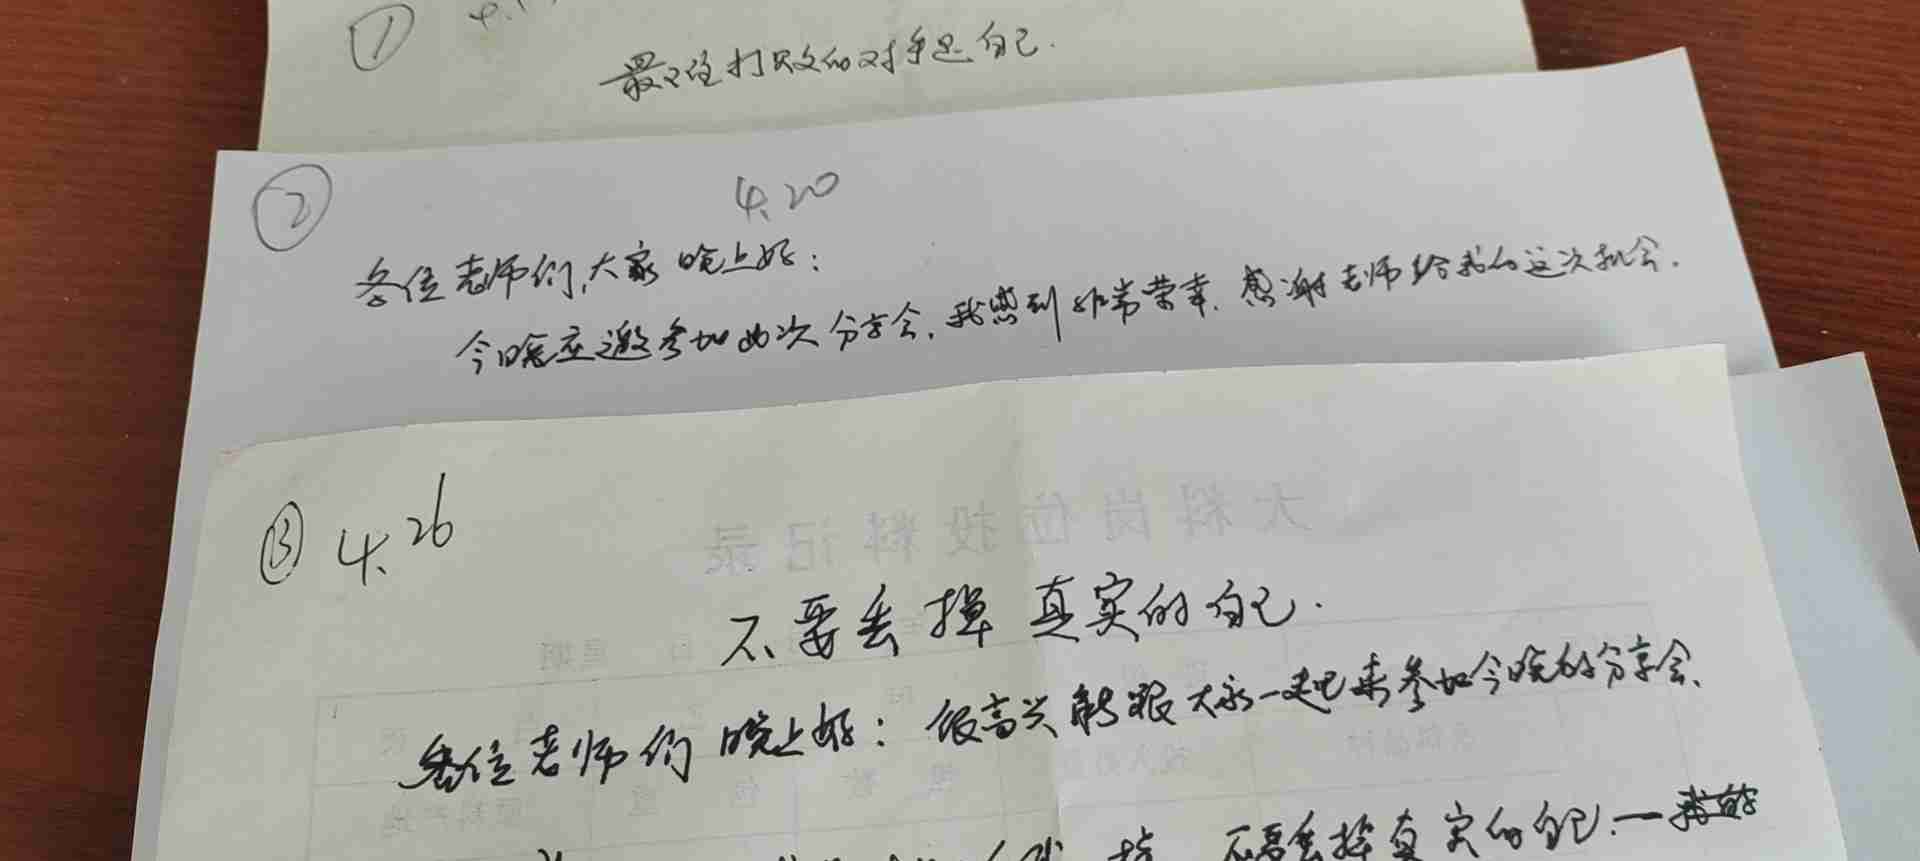 ① 4.1
最难打败的对手是自己.
② 4.20
各位老师们,大家晚上好:
今晚应邀参加此次分享会,我感到非常荣幸.感谢老师给我的这次机会.
③ 4.26
大料岗位投料记录
不要丢掉真实的自己.
星期 日
各位老师们晚上好:很高兴能跟大家一起来参加今晚的分享会、
原料产地 重
不要丢掉真实的自己.一